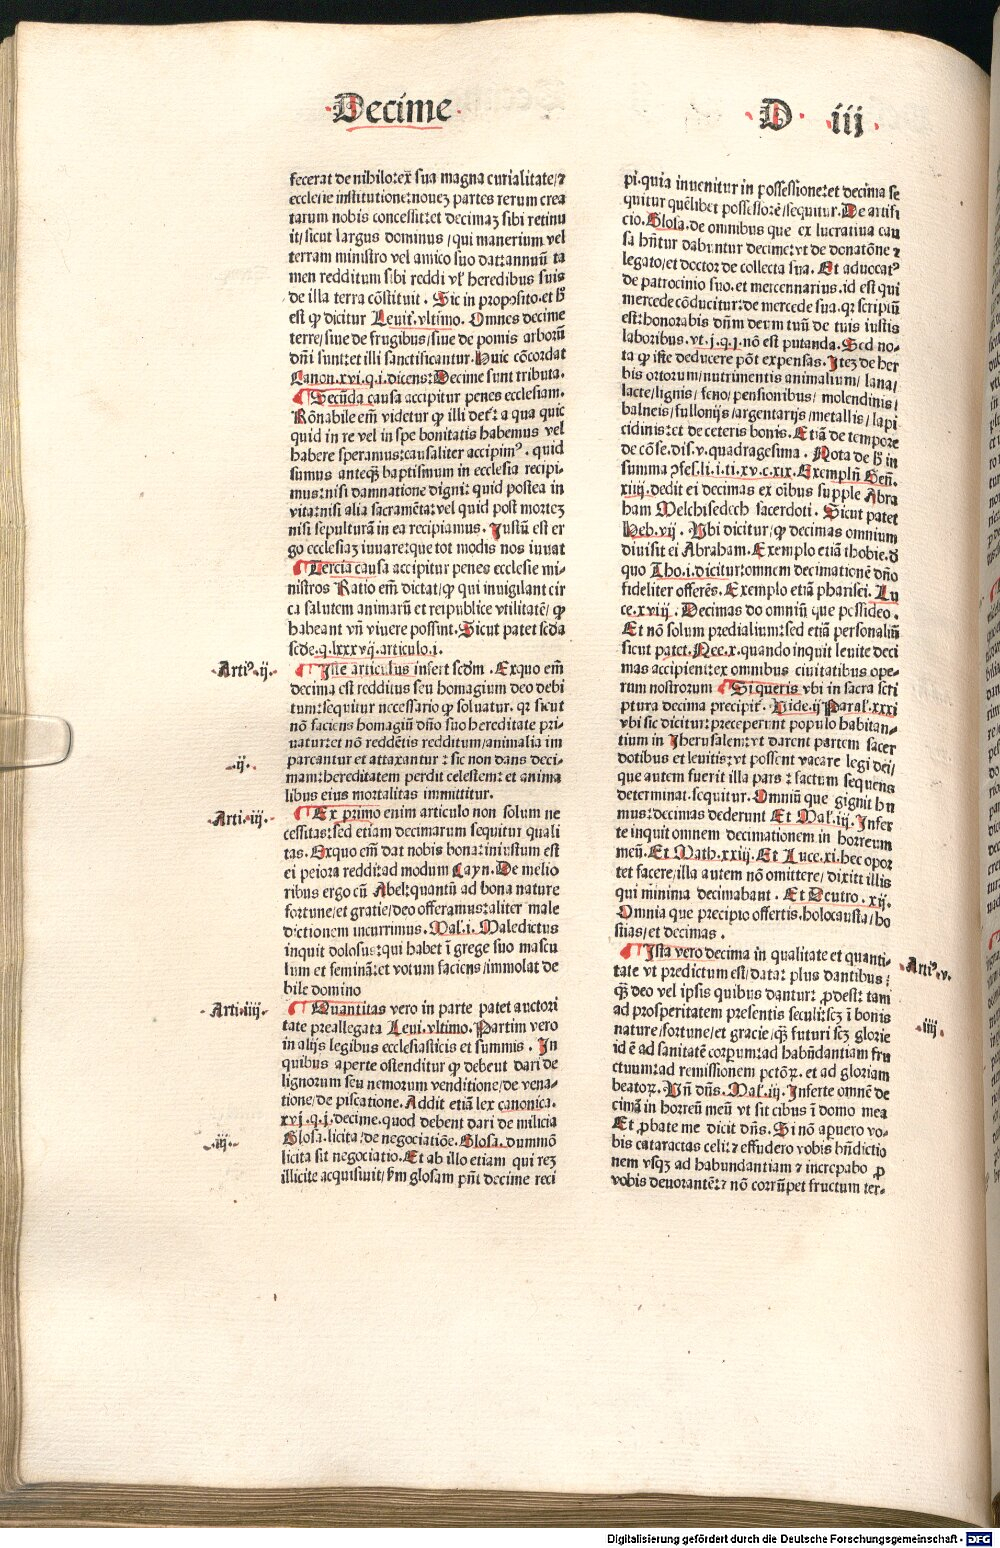 Decime
D iij
fecerat de nihilo: ex sua magna curialitate/ ⁊
ecclesie institutione: nouem partes rerum crea
tarum nobis concessit: et decimaȝ sibi retinu
it/ sicut largus dominus / qui manerium vel
terram ministro vel amico suo dat: annuū ta
men redditum sibi reddi vl' heredibus suis
de illa terra cōstituit . Sic in proposito. et h̄
est qꝙ dicitur Leuit̄. vltimo. Omnes decime
terre/ siue de frugibus/ siue de pomis arborū
dn̄i sunt: et illi sanctificantur. Huic cōcordat
Canon. xvi. q. i. dicens: Decime sunt tributa.
Secūda causa accipitur penes ecclesiam.
Rōnabile em̄ videtur ꝙ illi det̄: a qua quic
quid in re vel in spe bonitatis habemus vel
habere speramus: causaliter accipimꝰ. quid
sumus anteqꝫ baptismum in ecclesia recipi-
mus: nisi damnatione digni: quid postea in
vita: nisi alia sacramēta: vel quid post morteȝ
nisi sepulturā in ea recipiamus. Justū est er
go ecclesiaȝ iuuare: que tot modis nos iuuat
Tercia causa accipitur penes ecclesie mi-
nistros Ratio em̄ dictat/ ꝙ qui inuigilant cir
ca salutem animarū et reipublice vtilitatē/ ꝙ
habeant vn̄ viuere possint. Sicut patet scd̄a
scd̄e. q. lxxxvij. articulo. i.
Artiᵒ. ij.
Iste articulus infert scd̄m . Exquo em̄
decima est redditus seu homagium deo debi
tum: sequitur necessario ꝙ soluatur. qꝛ sicut
nō faciens homagiū dn̄o suo hereditate pri-
uatur: et nō reddētis redditum/ animalia im
parcantur et attaxantur : sic non dans deci-
.ij.
mam: hereditatem perdit celestem: et anima
libus eius mortalitas immittitur.
Arti. iij.
Ex primo enim articulo non solum ne
cessitas: sed etiam decimarum sequitur quali
tas. Exquo em̄ dat nobis bona: iniustum est
ei peiora reddi: ad modum Cayn. De melio
ribus ergo cū Abel: quantū ad bona nature
fortune/ et gratie/ deo offeramus: aliter male
dictionem incurrimus. Mal. i. Maledictus
inquit dolosus: qui habet ī grege suo mascu
lum et feminā: et votum faciens/ immolat de
bile domino
Arti. iiij.
Quantitas vero in parte patet auctori
tate preallegata Leui. vltimo. Partim vero
in alijs legibus ecclesiasticis et summis . In
quibus aperte ostenditur ꝙ debent dari de
lignorum seu nemorum venditione/ de vena-
tione/ de piscatione. Addit etiā lex canonica.
xvj. q. j. decime. quod debent dari de milicia
.iij.
Glosa. licita/ de negociatiōe. Glosa. dummō
licita sit negociatio. Et ab illo etiam qui reȝ
illicite acquisiuit/ ẜm glosam pn̄t decime reci
pi. quia inuenitur in possessione: et decima se
quitur quēlibet possessorē/ sequitur. De artifi
cio. Glosa. de omnibus que ex lucratiua cau
sa hn̄tur dabuntur decime: vt de donatōne ⁊
legato/ et doctor de collecta sua. Et aduocatꝰ
de patrocinio suo. et mercennarius. id est qui
mercede cōducitur: de mercede sua. qꝛ scriptū
est: honorabis dn̄m deum tuū de tuis iustis
laboribus. vt. j. q. j. nō est putanda. Sed no-
ta ꝙ iste deducere pōt expensas. Iteȝ de her
bis ortorum/ nutrimentis animalium/ lana/
lacte/ lignis/ feno/ pensionibus/ molendinis/
balneis/ fullonijs/ argentarijs/ metallis/ lapi
cidinis: et de ceteris bonis. Etiā de tempore
de cōse. dis. v. quadragesima . Nota de h̄ in
summa ꝯfes. li. i. ti. xv. c. xix. Exemplū Gen̄.
xiiij. dedit ei decimas ex oībus supple Abra
ham Melchisedech sacerdoti . Sicut patet
Heb. vij . Vbi dicitur/ ꝙ decimas omnium
diuisit ei Abraham. Exemplo etiā thobie. d̄
quo Tho. i. dicitur: omnem decimationē dn̄o
fideliter offerēs. Exemplo etiā pharisei. Lu
ce. xviij . Decimas do omniū que possideo.
Et nō solum predialium: sed etiā personaliū
sicut patet. Nee. x. quando inquit leuite deci
mas accipient: ex omnibus ciuitatibus ope-
rum nostrorum Si queris vbi in sacra scri
ptura decima precipit̄. Vide. ij Paral'. xxxi
vbi sic dicitur: preceperunt populo habitan-
tium in Jherusalem: vt darent partem sacer
dotibus et leuitis: vt possent vacare legi dei/
que autem fuerit illa pars : factum sequens
determinat. sequitur. Omniū que gignit hu
mus: decimas dederunt Et Mal'. iij. Infer
te inquit omnem decimationem in horreum
meū. Et Math. xxiij. Et Luce. xi. hec opor
tet facere/ illa autem nō omittere/ dixit illis
qui minima decimabant . Et Deutro. xij.
Omnia que precipio offertis. holocausta/ ho
stias/ et decimas .
Artiᵒ. v.
Ista vero decima in qualitate et quanti-
tate vt predictum est/ data: plus dantibus:
qꝫ deo vel ipsis quibus dantur: ꝓdest: tam
ad prosperitatem presentis seculi: scȝ ī bonis
.iiij.
nature/ fortune/ et gracie/ qꝫ futuri scȝ glorie
id ē ad sanitatē corpum: ad habūdantiam fru
ctuum: ad remissionem pctōꝝ. et ad gloriam
beatoꝝ. Vn̄ dn̄s. Mal'. iij. Inferte omnē de
cimā in horreū meū vt sit cibus ī domo mea
Et ꝓbate me dicit dn̄s. Si nō aperuero vo-
bis cataractas celi: ⁊ effudero vobis bn̄dictio
nem vsqȝ ad habundantiam ⁊ increpabo ꝓ
vobis deuorantē: ⁊ nō corrūpet fructum ter-
Digitalisierung gefördert durch die Deutsche Forschungsgemeinschaft - DFG